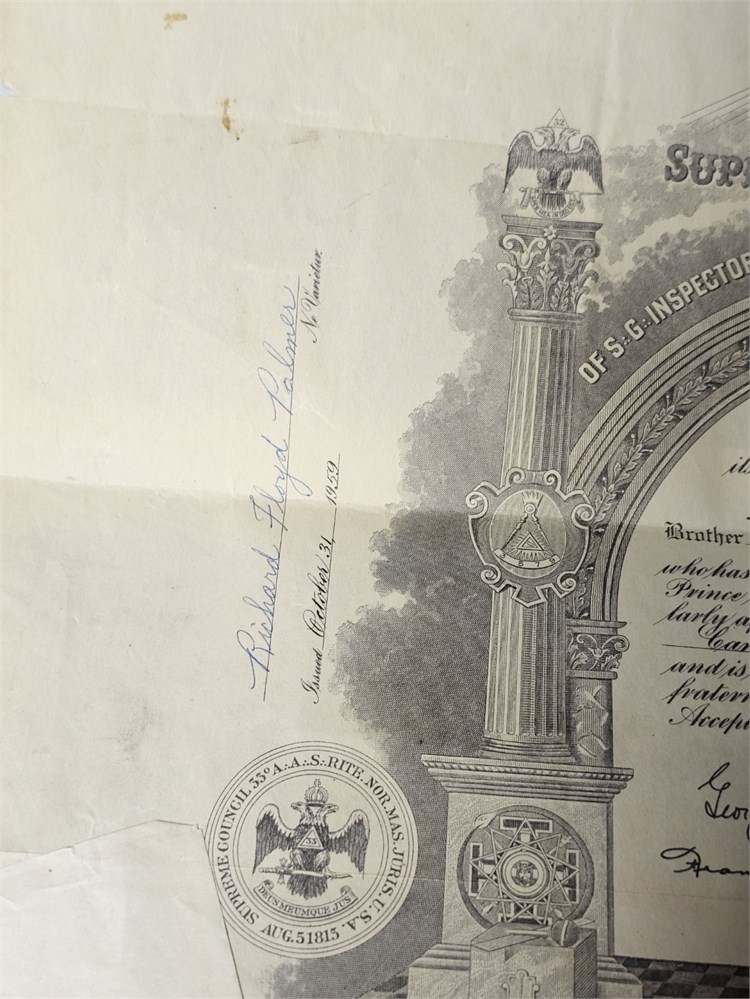 32
SUP
OF S∴G∴INSPECTOR
Richard Floyd Palmer
Ne Varietur.
Issued October 31 1959
its
Brother
who has
Prince
larly a
Can
and is
fratern
Accept
Geor
SUPREME COUNCIL 33° A∴A∴S∴RITE. NOR. MAS. JURIS. U.S.A.
33
DEUS MEUMQUE JUS
AUG. 5 1813